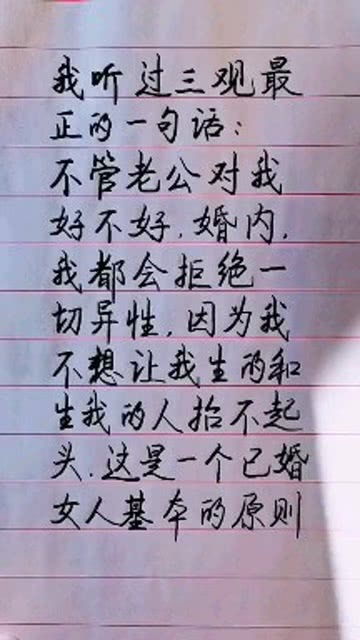 我听过三观最
正的一句话:
不管老公对我
好不好.婚内.
我都会拒绝一
切异性,因为我
不想让我生的和
生我的人抬不起
头.这是一个已婚
女人基本的原则